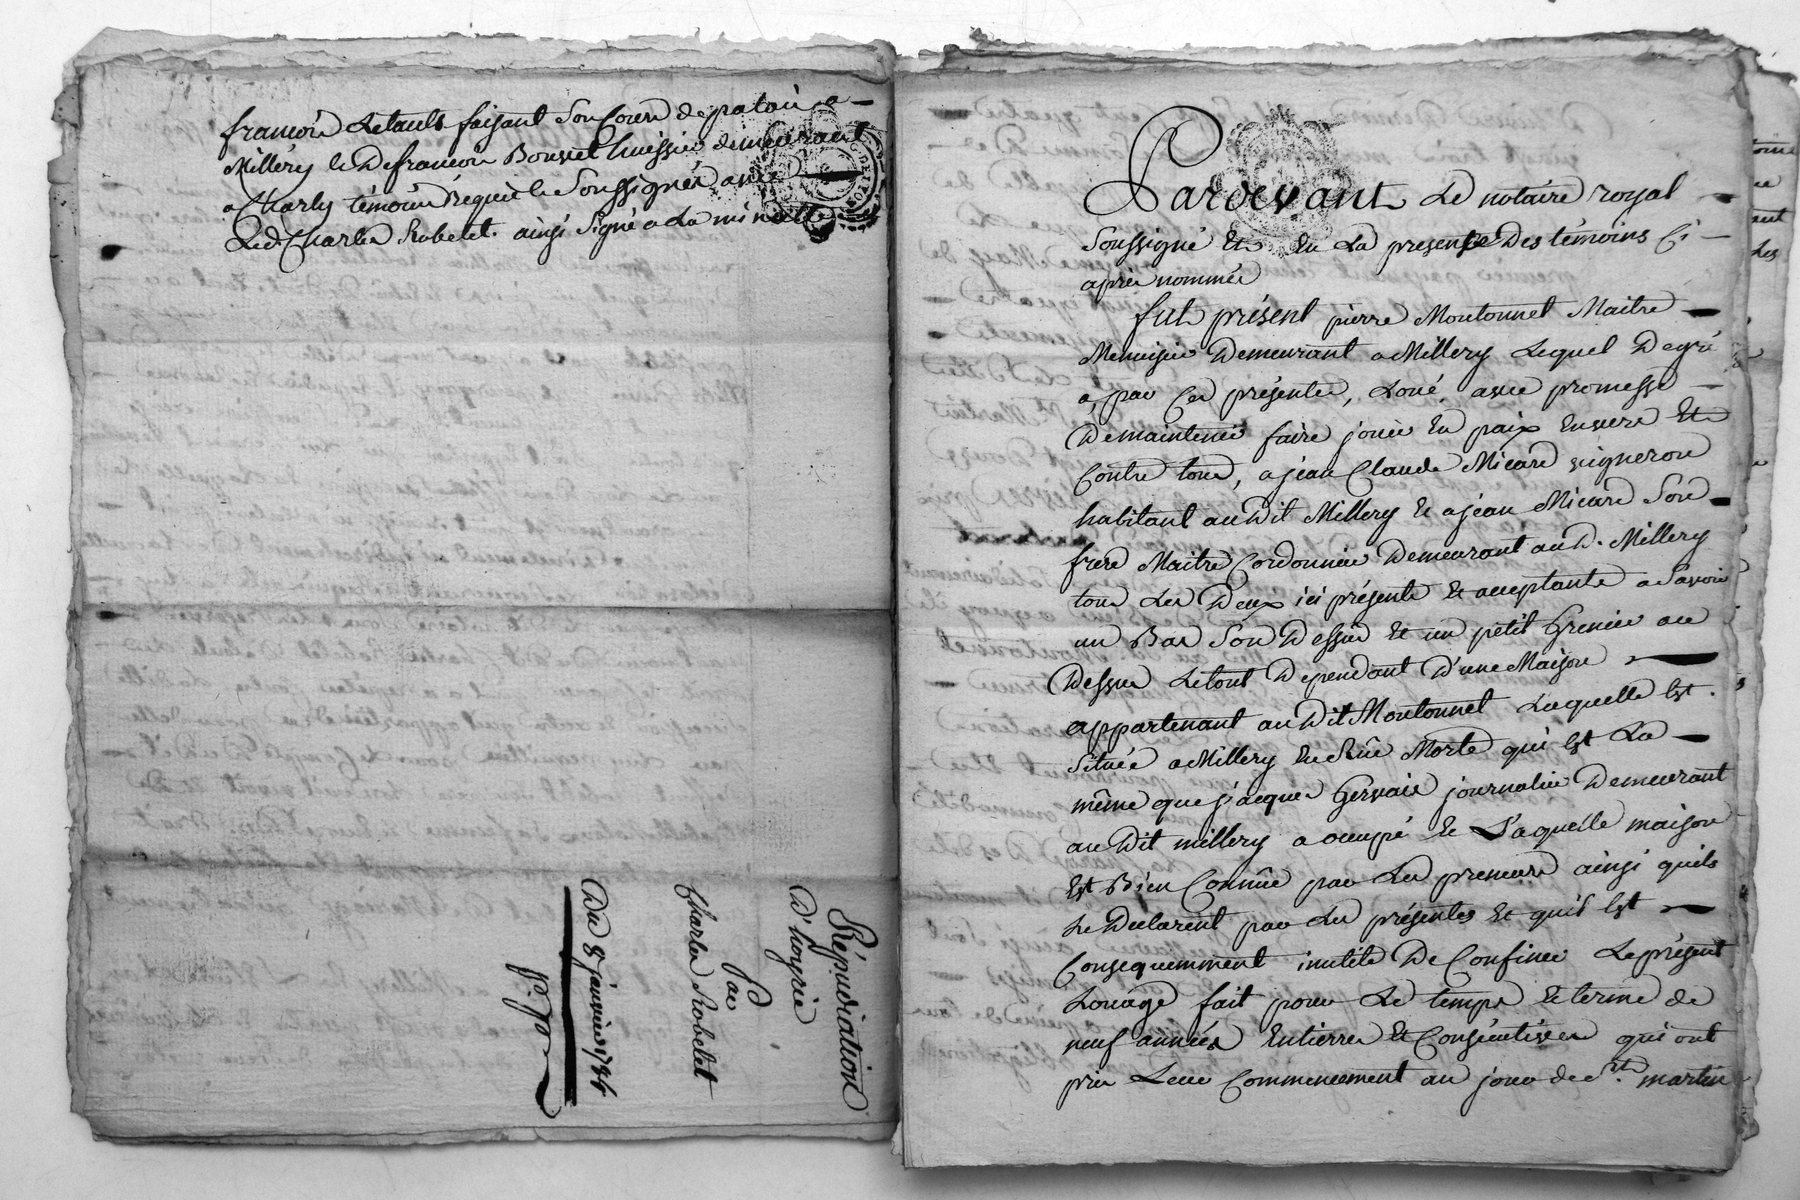 francois Letault faisant son Cours de patois a
Millery & De francois Bouvet huissier demeurant
a Charly témoins Requis & Soussignés avec
Led. Charles Robelet. ainsi Signé a La minutte
Répudiation
D'hoyrie
Par
Charles Robelet
Du 8 janvier 1786
Pardevant Le notaire royal
Soussigné Et En La presence Des témoins Ci
après nommés
fut présent pierre Moutonnet Maitre
Menuisier Demeurant a Millery Lequel De gré
a, par Ces présentes, Loué, avec promesse
De maintenir faire jouir En paix Envers Et
Contre tous, a jean Claude Micard vigneron
habitant au Dit Millery & a jean Micard Son
frere Maitre Cordonnier Demeurant au D. Millery
tous Les Deux ici présents & acceptants a Savoir
un Bas Son Dessus Et un petit Grenier au
Dessus Le tout Dependant D'une Maison
appartenant au Dit Moutonnet Laquelle Est
Située a Millery En Rüe Morte qui Est La
même que jacques Gervais journalier Demeurant
au Dit millery a occupé & Laquelle maison
Est Bien Connüe par Les preneurs ainsi quils
Le Declarent par Les présentes Et quil Est
Consequemment inutile De Confiner Le présent
Loüage fait pour Le temps & terme de
neuf années Entieres Et Conséutives qui ont
pris Leur Commencement au jour de St. martin